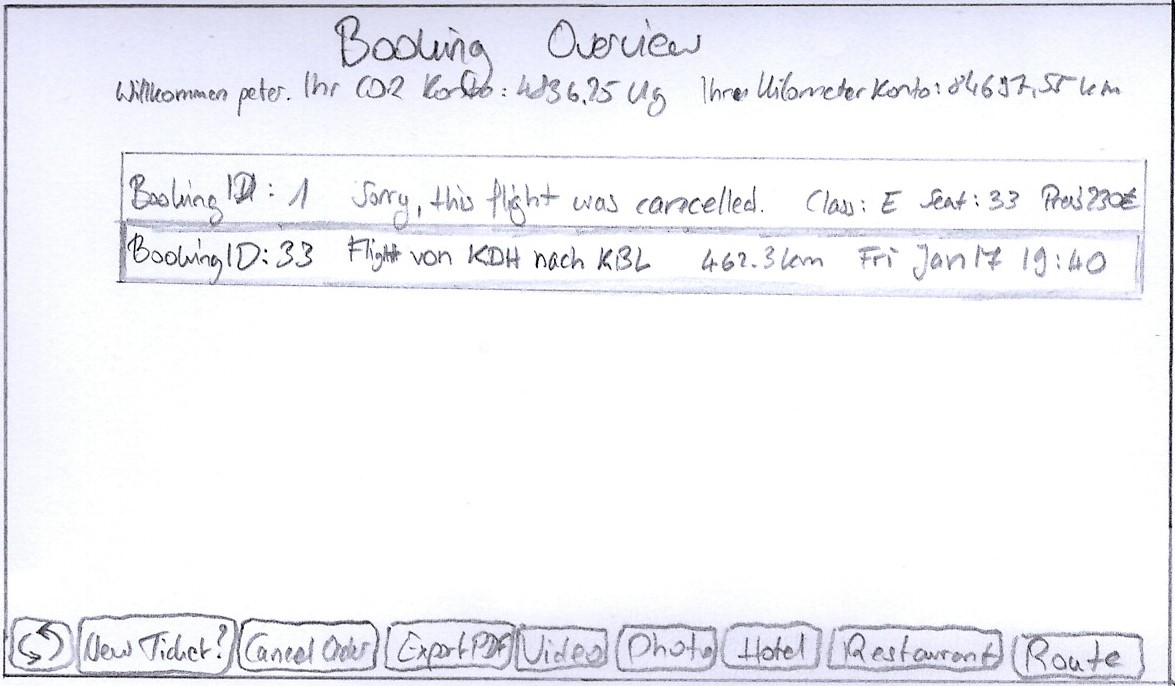 Booking Overview
Willkommen peter. Ihr CO2 Konto: 4836,25 kg Ihre Kilometer Konto: 84697,55 km
Booking ID: 1 Sorry, this flight was cancelled. Class: E Seat: 33 Preis 230€
Booking ID: 33 Flight von KDH nach KBL 462.3 km Fri Jan 17 19:40
New Ticket? Cancel Order Export PDF Video Photo Hotel Restaurant Route